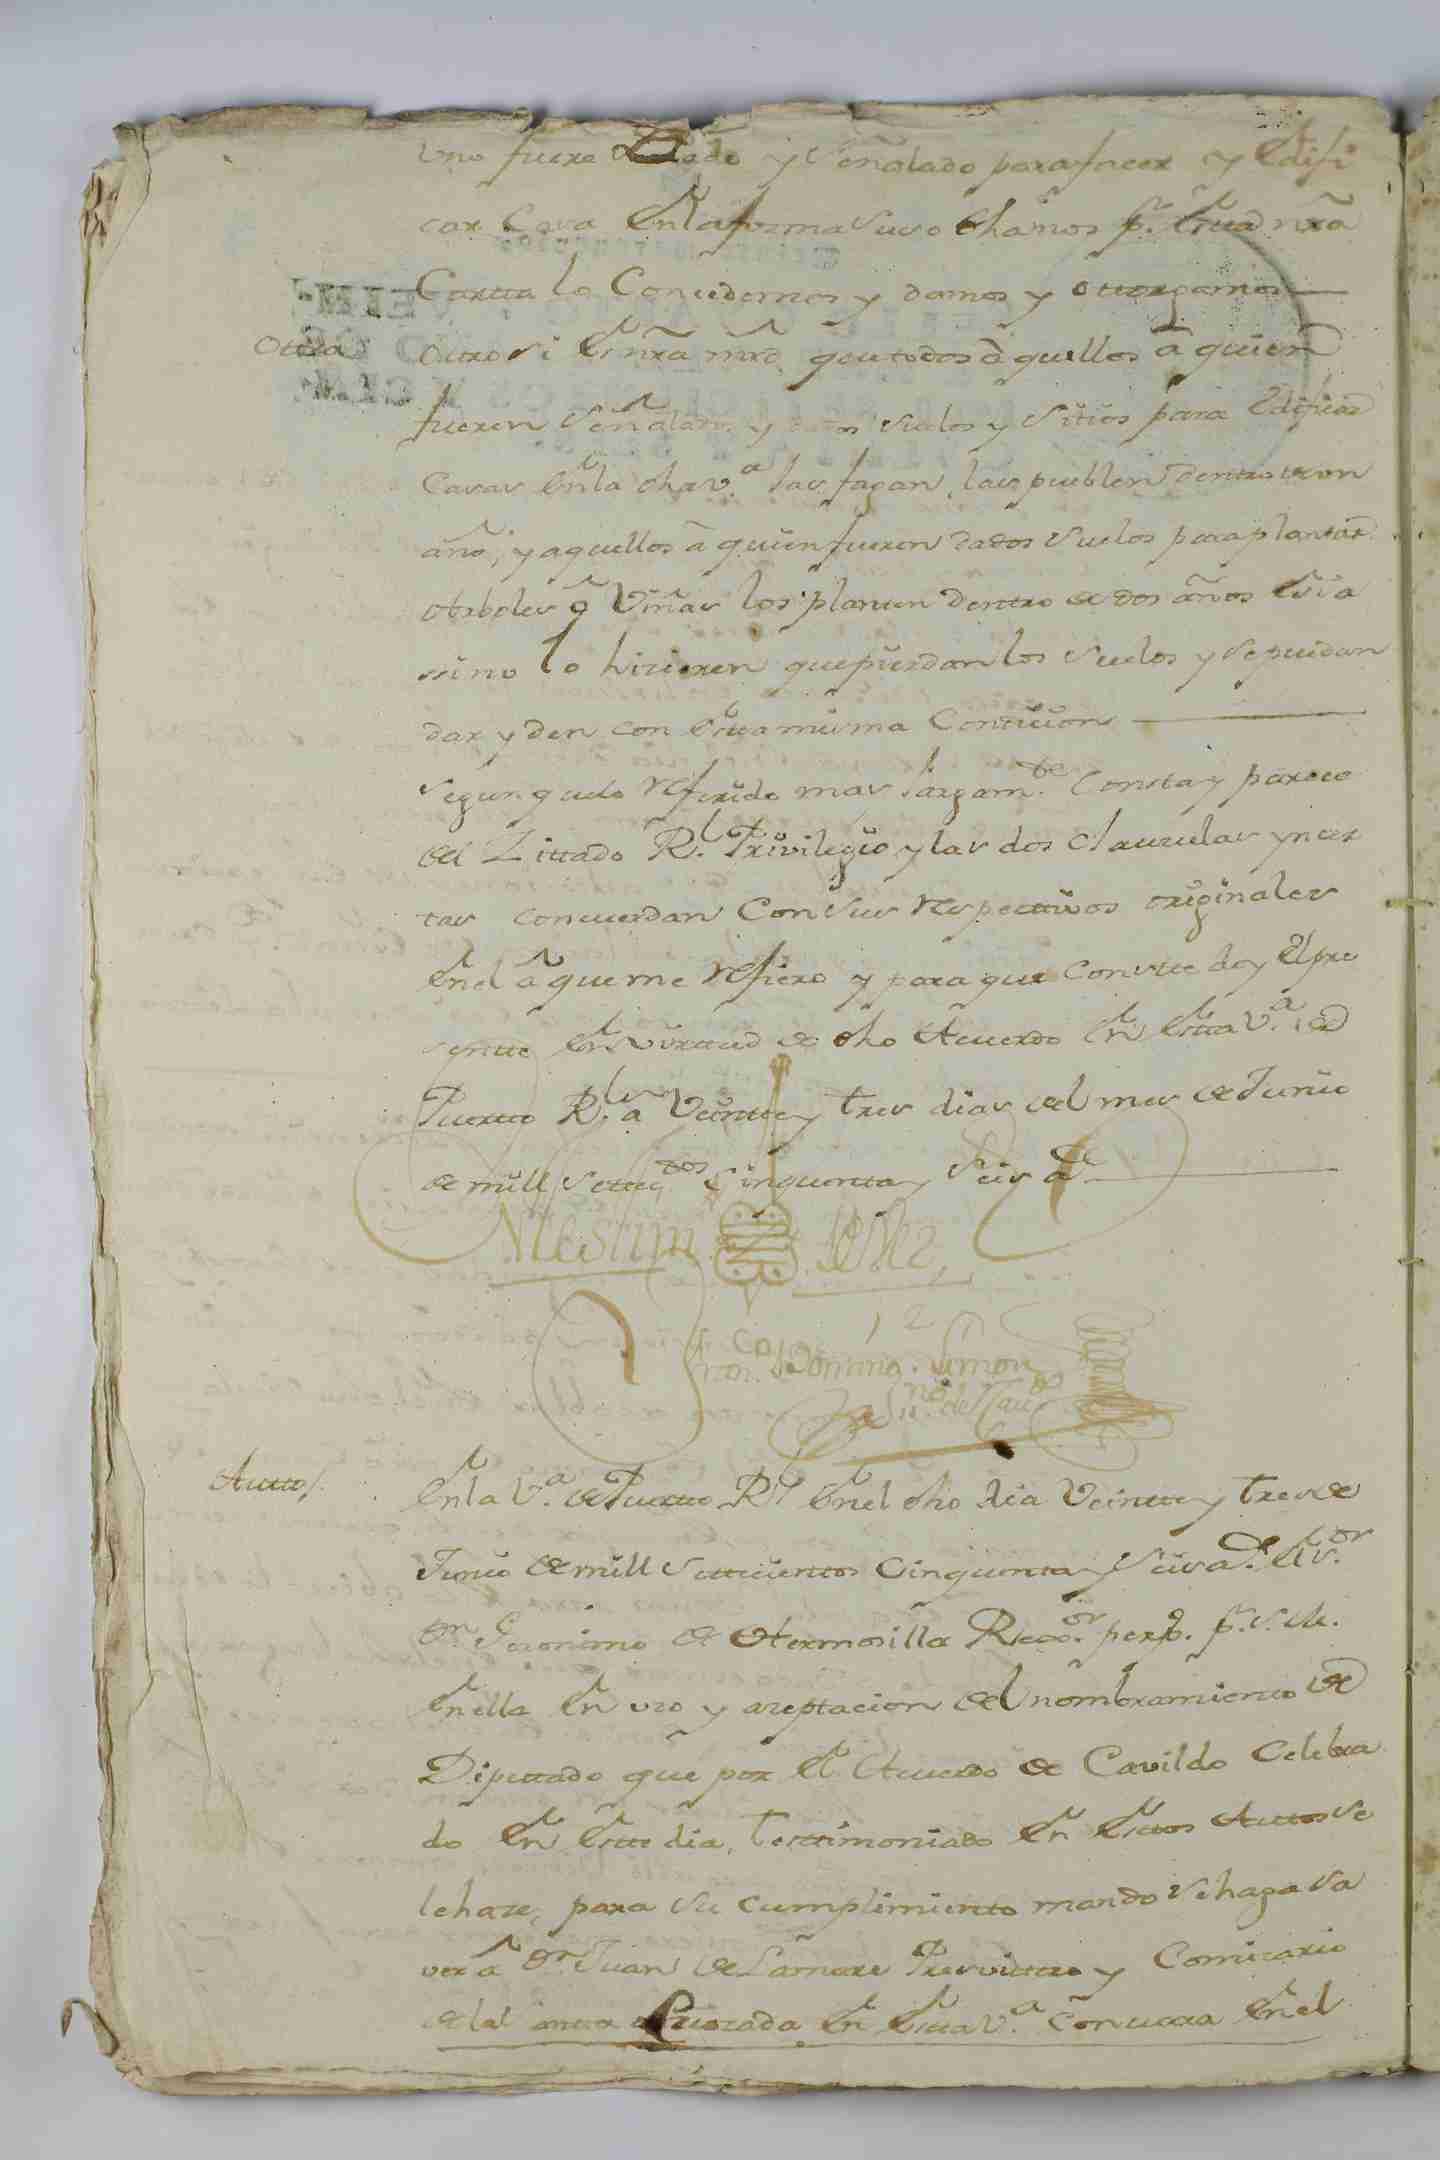 uno fuere dado y señalado para facer y Edifi
car Casa En la forma suso dhamos p.r Esta nrã
Cartta lo Concedemos y damos y ottorgamos
Ottra
Ottro si Es nrã mrd que todos àquellos à quien
fueren señalados y dados suelos y sitios para Edificar
Casas En la dha v.a las fagan, las pueblen dentro de un
año, y aquellos à quien fueren dados suelos para plantar
Arboles ò Viñas los planten dentro de dos años E si a
ssi no lo hicieren que pierdan los suelos y se puedan
dar y den con Esta misma Condicion
segun que lo referido mas largam.te Consta y parece
del Zittado R.l Privilegio y las dos Clausulas ynser
tas concuerdan Con sus respectivos originales
En el à que me refiero y para que Conste doy El pre
sentte En virtud de dho Acuerdo En Esta V.a de
Puertto R.l a Veintte y tres dias del mes de Junio
de mill settec.tos Cinquenta y seis a.s
En testim.o de Verd.
12
Fran.co Doming.o Simon
Ess.no de Cav.do
Autto/.
En la V.a de Puertto R.l En el dho dia Veintte y tres de
Junio de mill settecientos Cinquenta y seis a.s El s.or
D.n Geronimo de Hermosilla Rexi.or perp.o p.r S. M.
En ella En uso y azeptacion del nombramiento de
Diputtado que por El Acuerdo de Cavildo Celebra
do En Este dia, testimoniado En Estos Auttos se
le haze, para su cumplimiento mando se haga sa
ver à D.n Juan de Presvittero y Comisario
de la Cruzada En Esta V.a En el